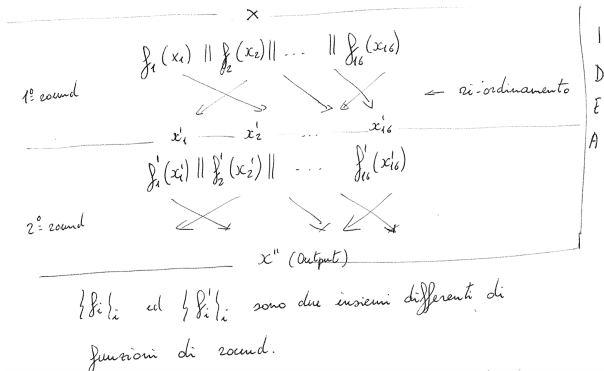 x
f₁(x₁) || f₂(x₂) || ... || f₁₆(x₁₆)
1º round
← ri-ordinamento
x'₁ x'₂ ... x'₁₆
f'₁(x'₁) || f'₂(x'₂) || ... f'₁₆(x'₁₆)
2º round
x'' (Output)
I
D
E
A
{fᵢ}ᵢ ed {fᵢ'}ᵢ sono due insiemi differenti di
funzioni di round.